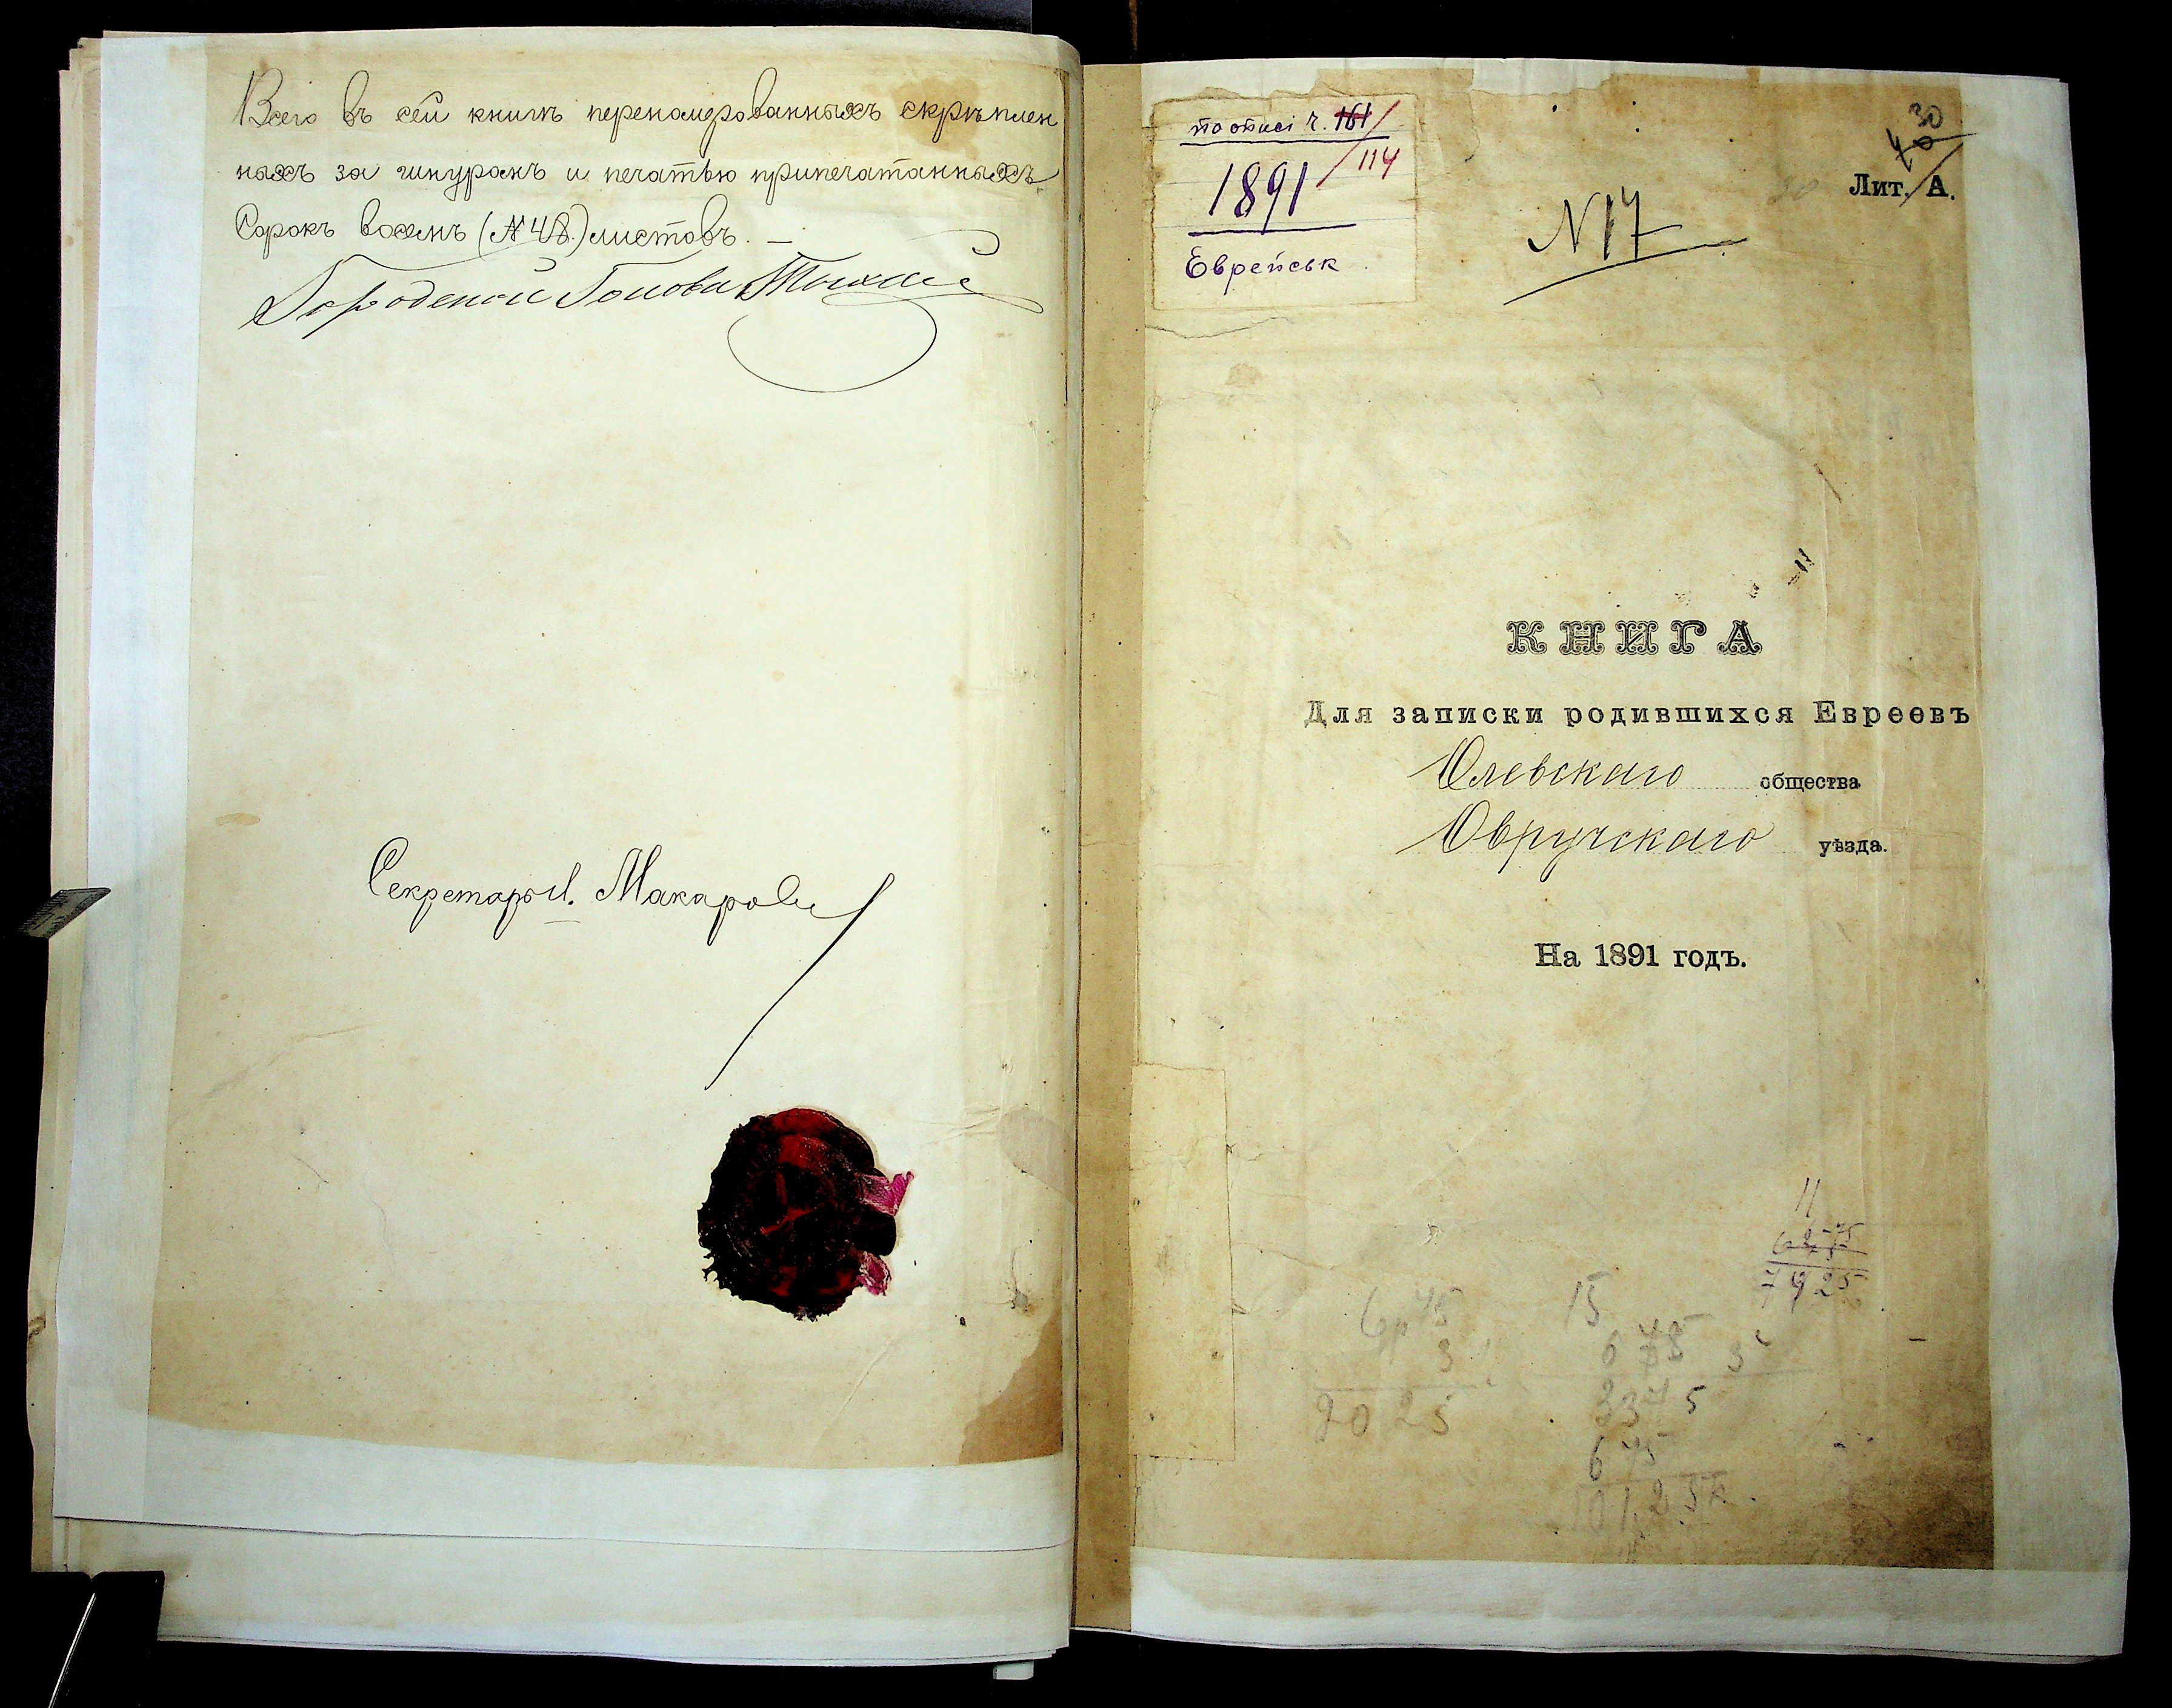 Всего въ сей книгѣ переномерованныхъ скрѣплен
ныхъ за шнуромъ и печатью припечатанныхъ
Сорокъ восемь (№ 48.) листовъ.
Городской Голова
Секретарь И. Макаров
по описі ч. 161
114
1891
Еврейськ.
30
Лит. А.
N 17
КНИГА
Для записки родившихся Евреевъ
Олевскаго общества
Овручскаго уѣзда.
На 1891 годъ.
11
675
7425
6р 75
3
2025
15
675
3375
675
101,25к.